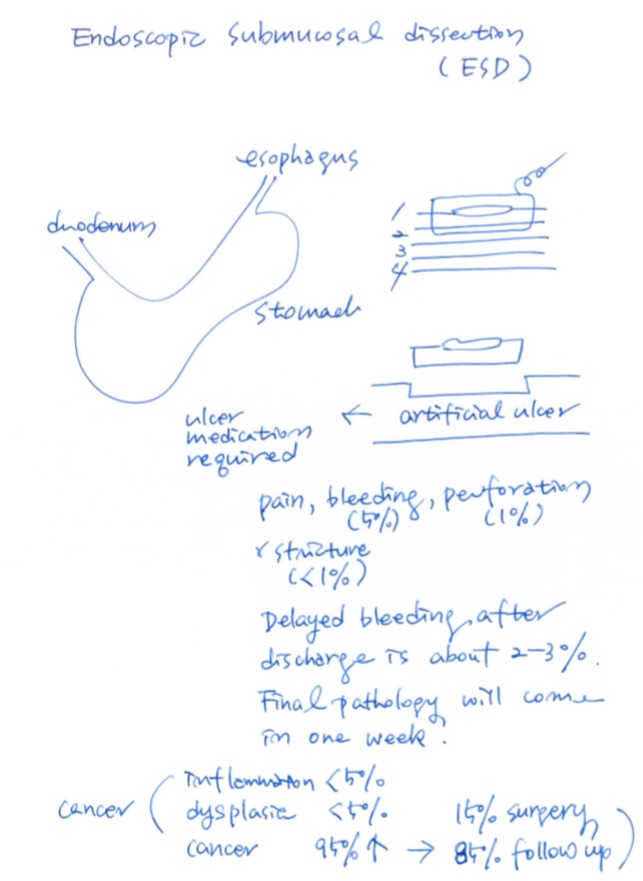 Endoscopic submucosal dissection
(ESD)
esophagus
duodenum
stomach
1
2
3
4
artificial ulcer
←
ulcer
medication
required
pain, bleeding, perforation
(5%) (1%)
stricture
(<1%)
Delayed bleeding after
discharge is about 2-3%.
Final pathology will come
in one week.
cancer (
inflammation <5%
dysplasia <5% 15% surgery
cancer 95%↑ → 85% follow up )